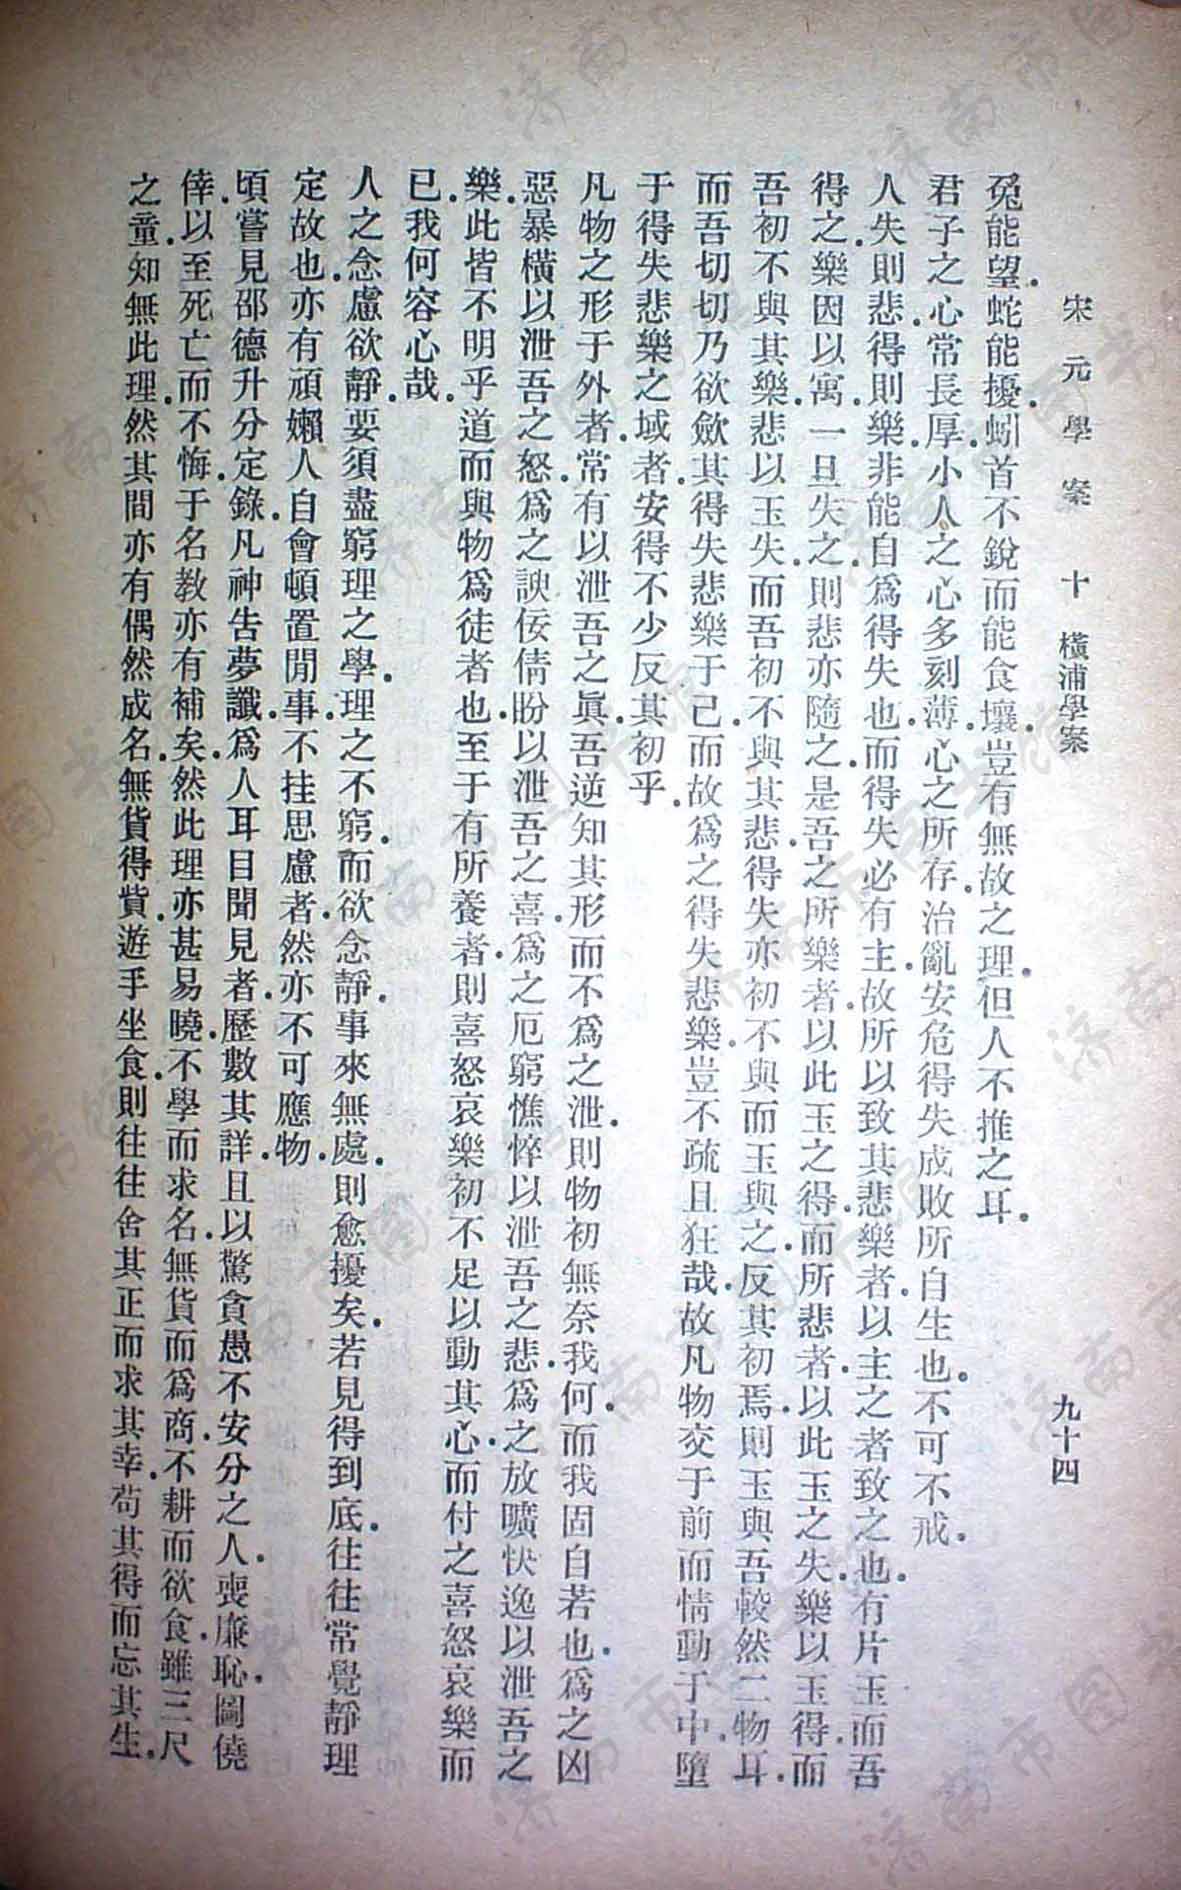 宋元學案 十 橫浦學案 九十四
兔能望蛇能擾蚓首不銳而能食壤豈有無故之理但人不推之耳
君子之心常長厚小人之心多刻薄心之所存治亂安危得失成敗所自生也不可不戒
人失則悲得則樂非能自爲得失也而得失必有主故所以致其悲樂者以主之者致之也有片玉而吾
得之樂因以寓一旦失之則悲亦隨之是吾之所樂者以此玉之得而所悲者以此玉之失樂以玉得而
吾初不與其樂悲以玉失而吾初不與其悲得失亦初不與而玉與之反其初焉則玉與吾較然二物耳
而吾切切乃欲斂其得失悲樂于己而故爲之得失悲樂豈不疏且狂哉故凡物交于前而情動于中墮
于得失悲樂之域者安得不少反其初乎
凡物之形于外者常有以泄吾之眞吾逆知其形而不爲之泄則物初無奈我何而我固自若也爲之凶
惡暴橫以泄吾之怒爲之諛佞倩盼以泄吾之喜爲之厄窮憔悴以泄吾之悲爲之放曠快逸以泄吾之
樂此皆不明乎道而與物爲徒者也至于有所養者則喜怒哀樂初不足以動其心而付之喜怒哀樂而
已我何容心哉
人之念慮欲靜要須盡窮理之學理之不窮而欲念靜事來無處則愈擾矣若見得到底往往常覺靜理
定故也亦有頑嬾人自會頓置閒事不挂思慮者然亦不可應物
頃嘗見邵德升分定錄凡神告夢讖爲人耳目聞見者歷數其詳且以驚貪愚不安分之人喪廉恥圖僥
倖以至死亡而不悔于名教亦有補矣然此理亦甚易曉不學而求名無貨而爲商不耕而欲食雖三尺
之童知無此理然其間亦有偶然成名無貨得貲遊手坐食則往往舍其正而求其幸苟其得而忘其生